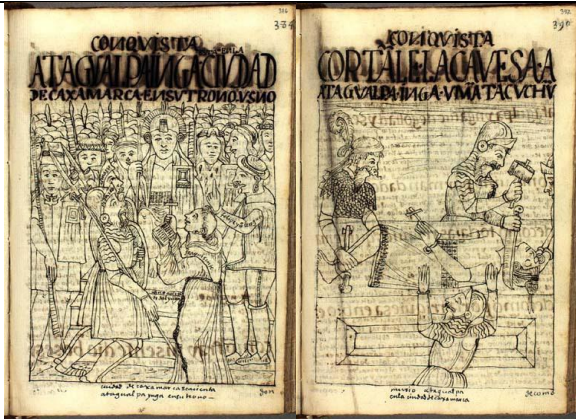 386
384
CONQVISTA
ATAGVALPA INGA CIVDAD
DE CAXAMARCA EN SV TRONO VSNO
ciudad de caxamarca se acienta
atagualpa ynga en su trono
392
390
CONQVISTA
CORTALE LA CAVESA A
ATAGVALPA INGA VMATA CVCHV
murio atagualpa
en la ciudad de caxamarca
de como